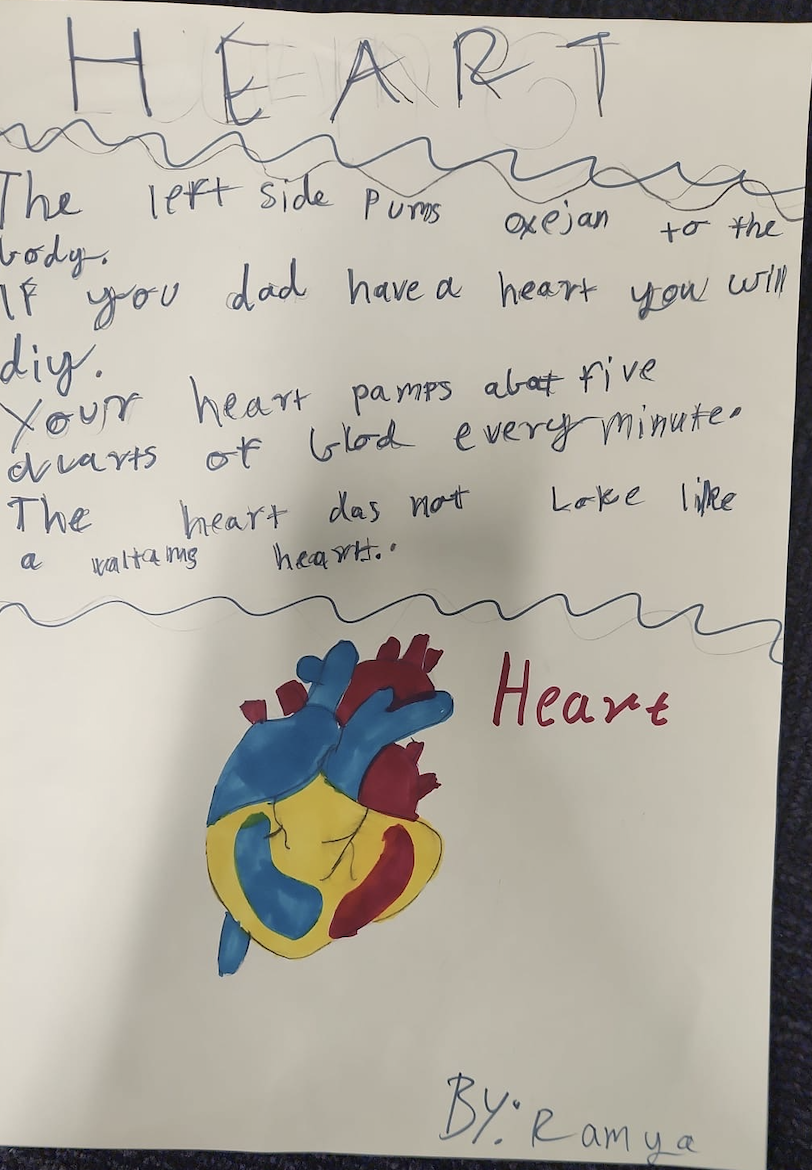 HEART
The left side pums oxejan to the
body.
If you dad have a heart you will
diy.
Your heart pamps abat five
quarts of blod every minute.
The heart das not Loke like
a valtaing heart.
Heart
BY: Ramya